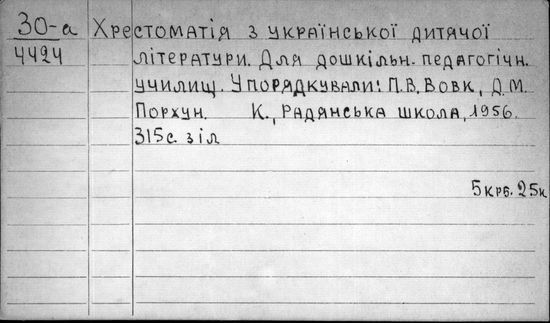 30-а
4424
Хрестоматія з української дитячої
літератури. Для дошкільн. педагогічн.
училищ. Упорядкували: П.В. Вовк, Д.М.
Порхун. К., Радянська школа, 1956.
315с. з іл
5 крб. 25к